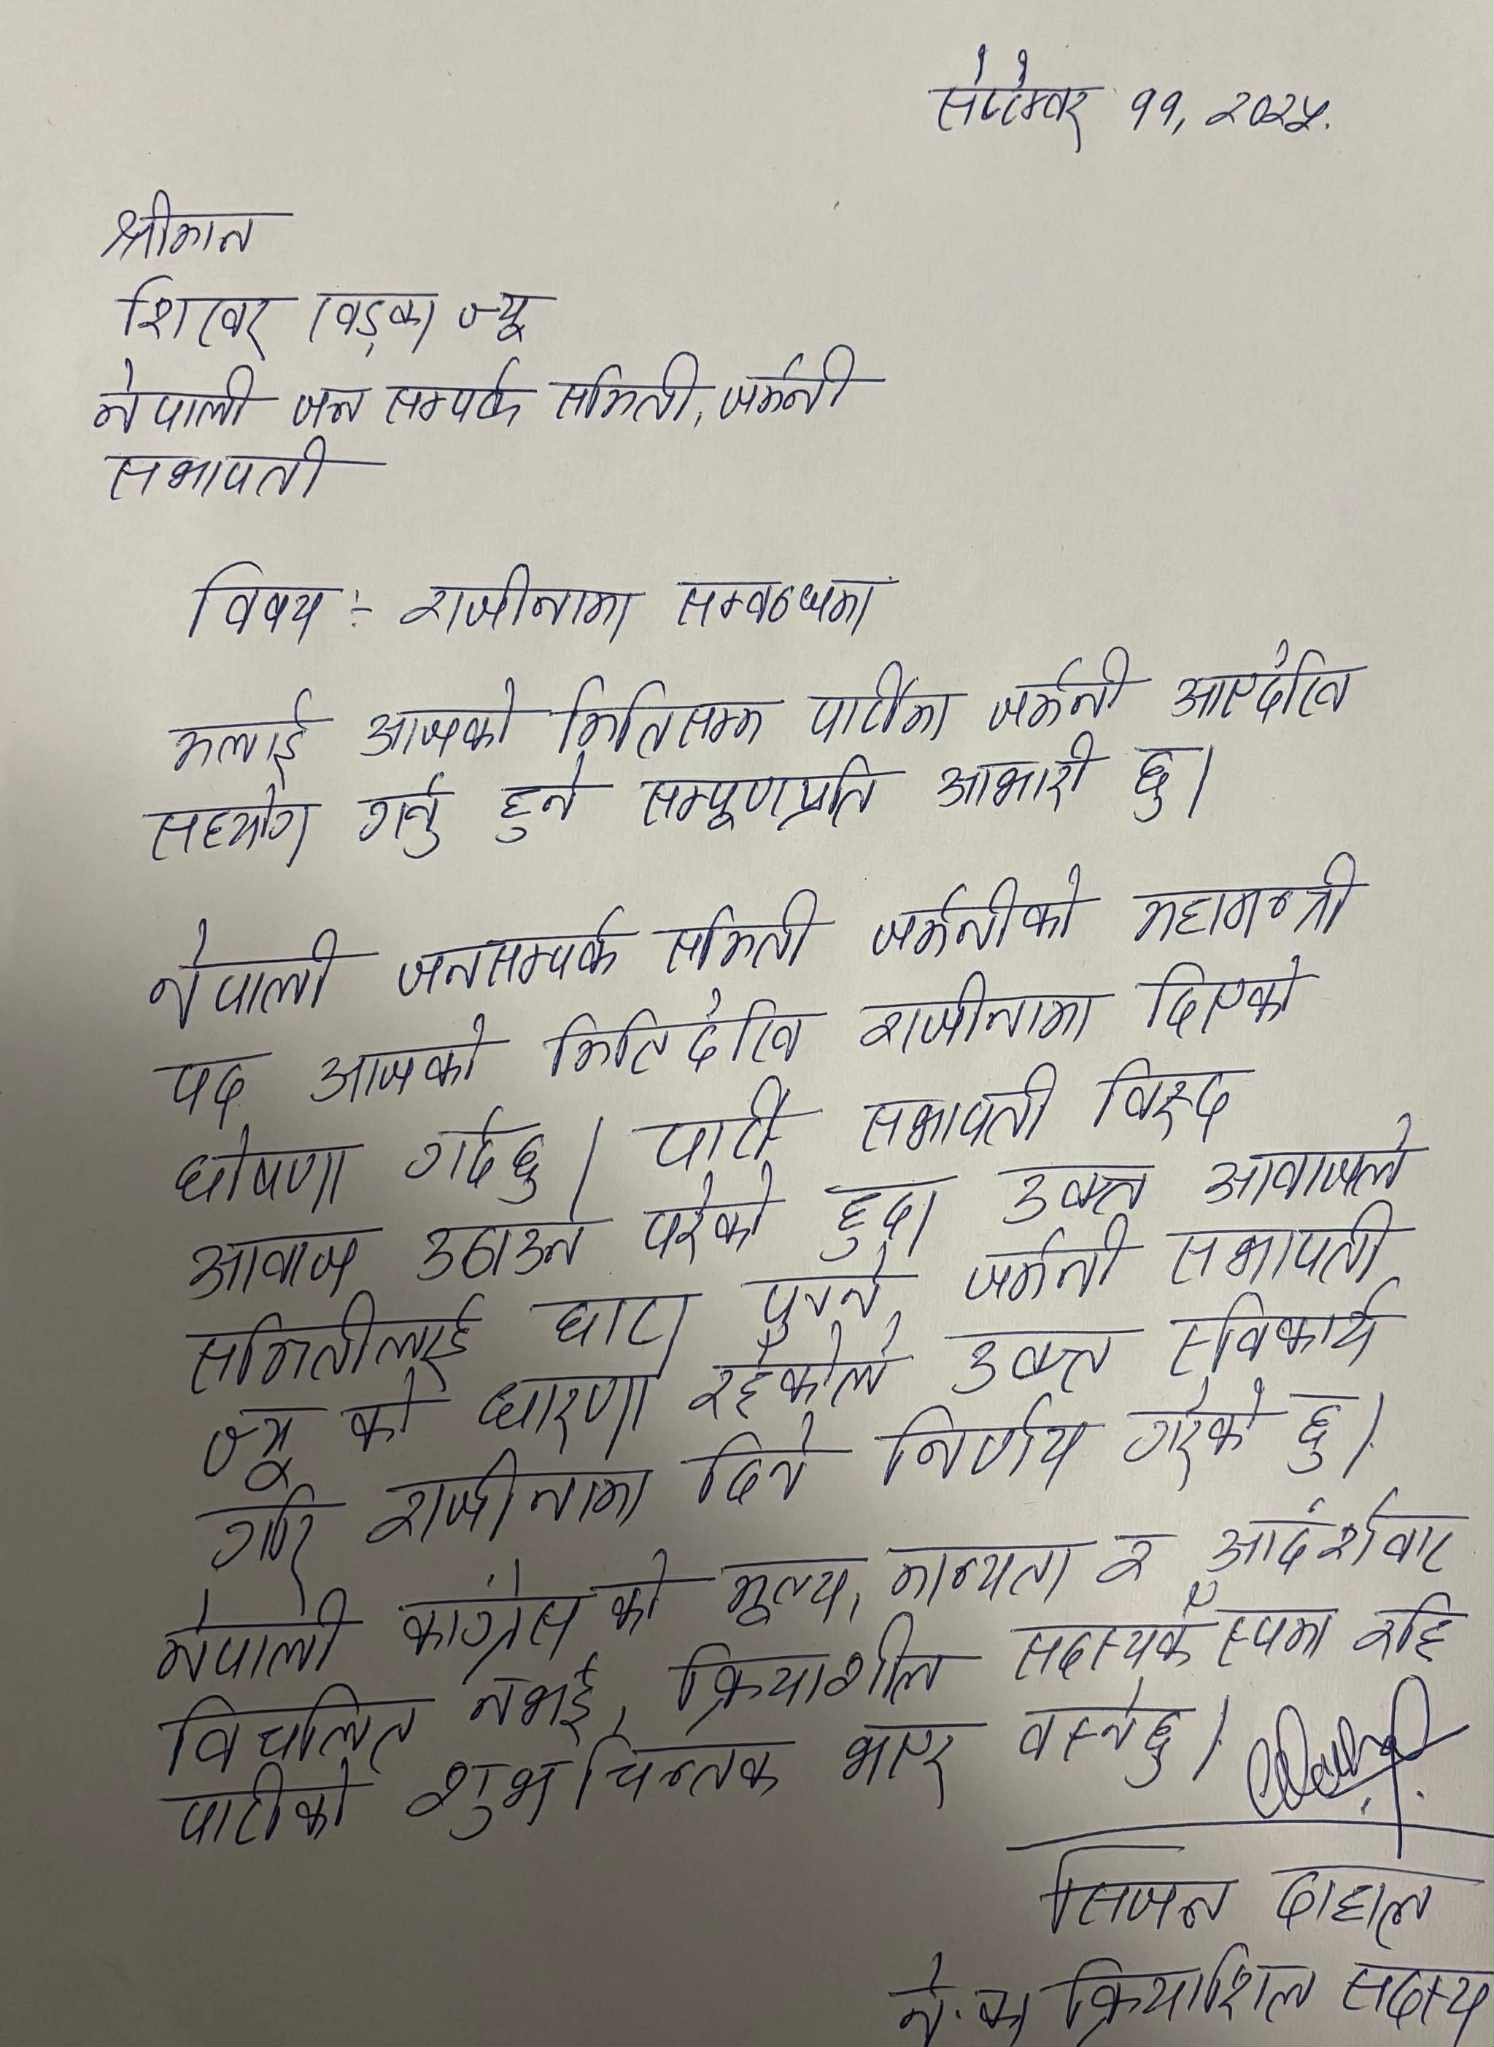 सेप्टेम्बर ११, २०२५.
श्रीमान
शिखर खड़का ज्यू
नेपाली जन सम्पर्क समिती, जर्मनी
सभापती
विषय :- राजीनामा सम्बन्धमा
मलाई आजको मितिसम्म पार्टीमा जर्मनी आएदेखि
सहयोग गर्नु हुने सम्पूणप्रति आभारी छु।
नेपाली जनसम्पर्क समिती जर्मनीको महामन्त्री
पद आजको मितिदेखि राजीनामा दिएको
घोषणा गर्दछु। पार्टी सभापती विरूद
आवाज उठाउन परेको हुदा उक्त आवाजले
समितीलाई घाटा पुग्ने, जर्मनी सभापती
ज्यू को धारणा रहेकोले उक्त स्विकार्य
गरि राजीनामा दिने निर्णय गरेको छु।
नेपाली कांग्रेस को मूल्य, मान्यता र आदर्शवाट
विचलित नभई, क्रियाशील सदस्यकै रूपमा रहि
पार्टीको शुभचिन्तक भएर वस्नेछु।
सिजन दाहाल
ने.का क्रियाशिल सदस्य